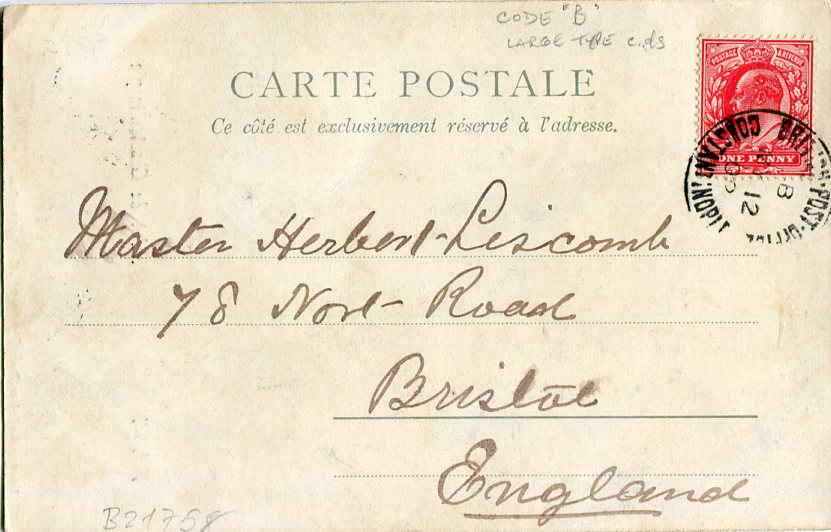 CODE "B"
LARGE TYPE c.ds
CARTE POSTALE
Ce côté est exclusivement réservé à l'adresse.
POSTAGE & REVENUE
ONE PENNY
BRITISH·POST·OFFICE
CONSTANTINOPL
B
12
Master Herbert Liscomb
78 Nort Road
Bristol
England
B21758